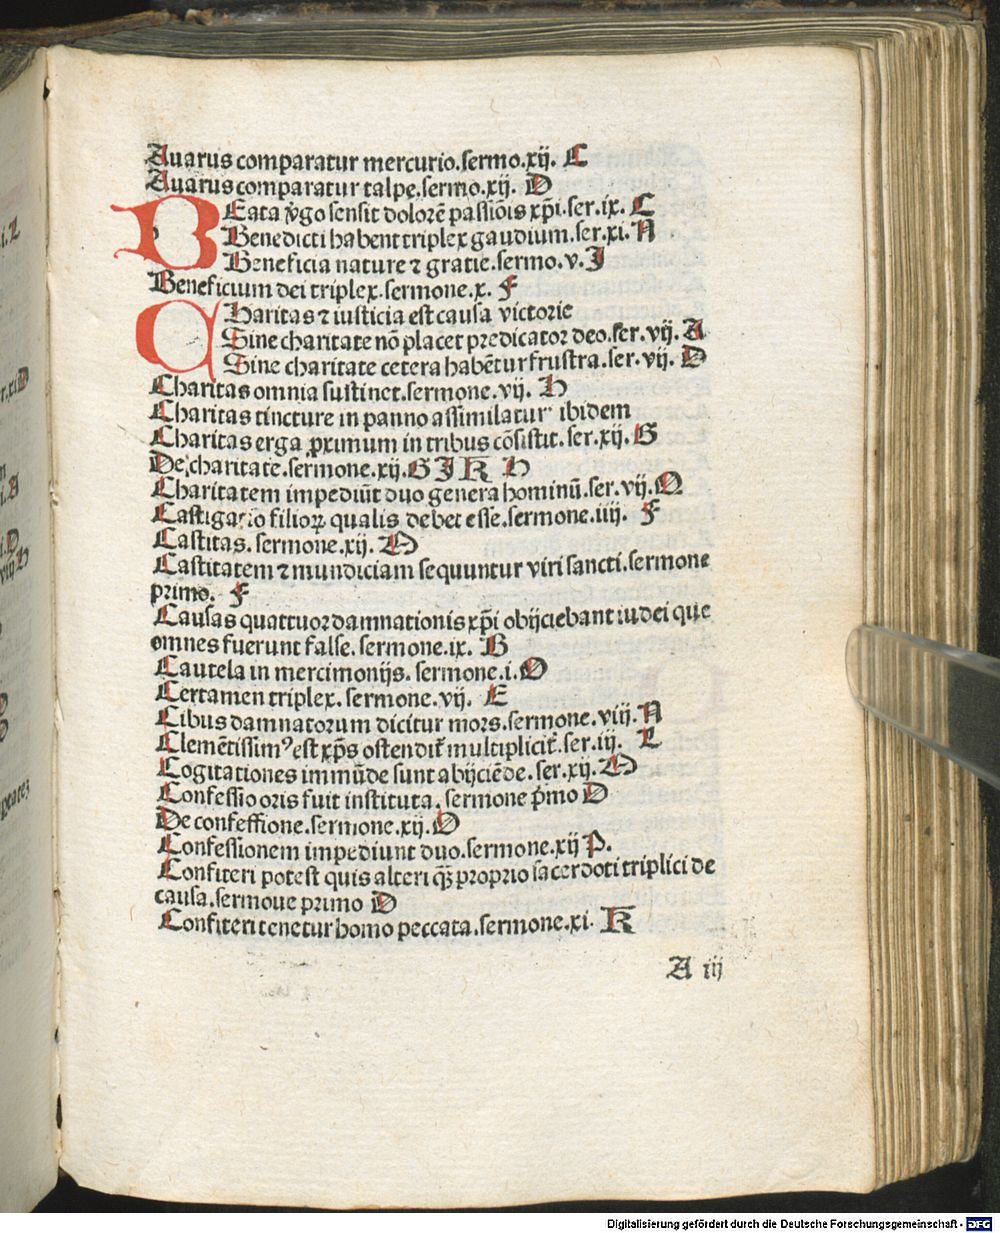 Auarus comparatur mercurio.sermo.xij. C
Auarus comparatur talpę.sermo.xij. D
BEata v̓go sensit dolorē passiōis xp̄i.ser.ix. C
Benedicti habent triplex gaudium.ser.xi. N
Beneficia nature ⁊ gratie.sermo.v. I
Beneficium dei triplex.sermone.x. F
CHaritas ⁊ iusticia est causa victorie
Sine charitate nō placet predicator deo.ser.vij. A
Sine charitate cetera habētur frustra.ser.vij. D
Charitas omnia sustinet.sermone.vij. H
Charitas tincture in panno assimilatur ibidem
Charitas erga ꝓximum in tribus cōsistit.ser.xij. G
De charitate.sermone.xij. G I K H
Charitatem impediūt duo genera hominū.ser.vij. O
Castigatio filioꝝ qualis debet esse.sermone.iiij. F
Castitas.sermone.xij. M
Castitatem ⁊ mundiciam sequuntur viri sancti.sermone
primo. F
Causas quattuor damnationis xp̄i obijciebant iudei que
omnes fuerunt false.sermone.ix. B
Cautela in mercimonijs.sermone.i. O
Certamen triplex.sermone.vij. E
Cibus damnatorum dicitur mors.sermone.viij. N
Clemētissimꝰ est xp̄s ostendit̄ multiplicit̄.ser.iij. L
Cogitationes immūde sunt abijciēde.ser.xij. M
Confessio oris fuit instituta.sermone p̓mo D
De confessione.sermone.xij. O
Confessionem impediunt duo.sermone.xij P.
Confiteri potest quis alteri qƺ̄ proprio sacerdoti triplici de
causa.sermoue primo D
Confiteri tenetur homo peccata.sermone.xi. K
A iij
Digitalisierung gefördert durch die Deutsche Forschungsgemeinschaft - DFG